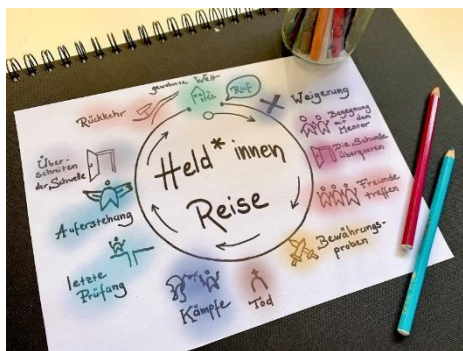 Held*innen
Reise
gewohnte Welt
Ruf
Weigerung
Begegnung
mit dem
Mentor
Die Schwelle
überqueren
Freunde
treffen
Bewährungs-
proben
Tod
Kämpfe
letzte
Prüfung
Auferstehung
Über-
schreiten
der Schwelle
Rückkehr